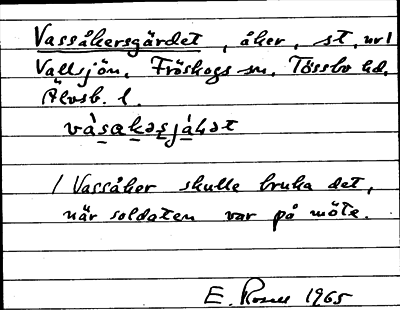 Vassåkersgärdet, åker, st. nr 1
Vallsjön, Fröskogs sn, Tössbo hd,
Älvsb. l.
vàsakəsjáḷət
/ Vassåker skulle bruka det,
när soldaten var på möte.
E. 1965